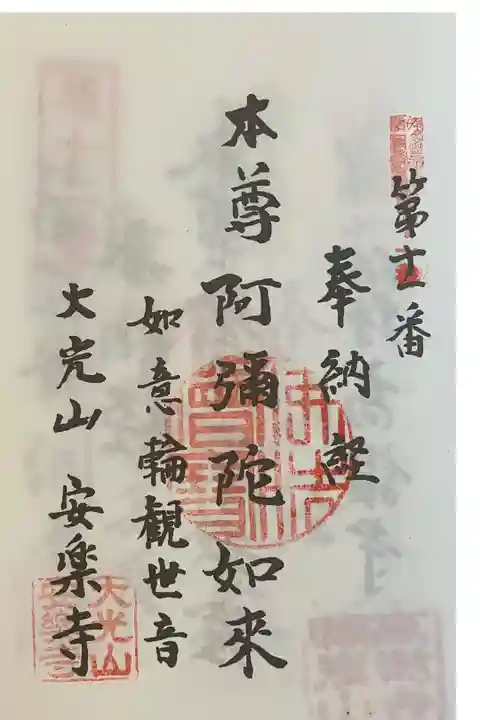 第十一番
奉納経
本尊阿彌陀如来
如意輪観世音
大光山 安楽寺
大光山